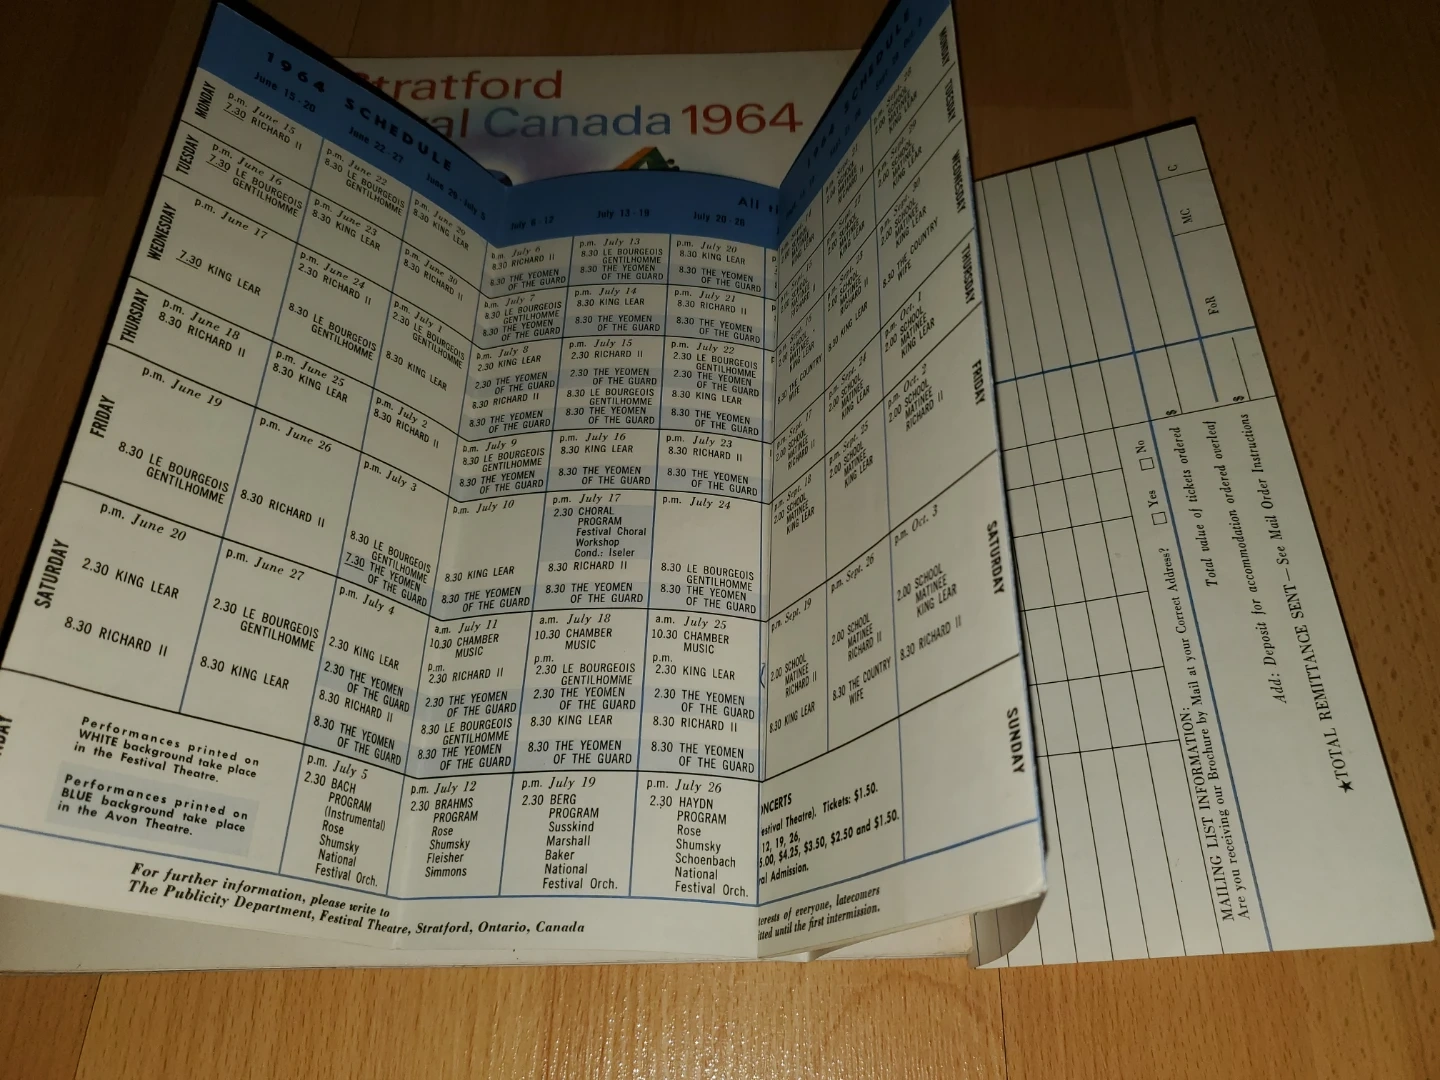 Stratford
Canada 1964
1964 SCHEDULE
June 15-20
June 22-27
June 29-July 5
MONDAY
p.m. June 15
7.30 RICHARD II
p.m. June 22
8.30 LE BOURGEOIS
GENTILHOMME
p.m. June 29
8.30 KING LEAR
TUESDAY
p.m. June 16
7.30 LE BOURGEOIS
GENTILHOMME
p.m. June 23
8.30 KING LEAR
p.m. June 30
8.30 RICHARD II
WEDNESDAY
p.m. June 17
7.30 KING LEAR
p.m. June 24
2.30 RICHARD II
8.30 LE BOURGEOIS
GENTILHOMME
p.m. July 1
2.30 LE BOURGEOIS
GENTILHOMME
8.30 KING LEAR
THURSDAY
p.m. June 18
8.30 RICHARD II
p.m. June 25
8.30 KING LEAR
p.m. July 2
8.30 RICHARD II
FRIDAY
p.m. June 19
8.30 LE BOURGEOIS
GENTILHOMME
p.m. June 26
8.30 RICHARD II
p.m. July 3
8.30 LE BOURGEOIS
GENTILHOMME
7.30 THE YEOMEN
OF THE GUARD
SATURDAY
p.m. June 20
2.30 KING LEAR
8.30 RICHARD II
p.m. June 27
2.30 LE BOURGEOIS
GENTILHOMME
8.30 KING LEAR
p.m. July 4
2.30 KING LEAR
2.30 THE YEOMEN
OF THE GUARD
8.30 RICHARD II
8.30 THE YEOMEN
OF THE GUARD
Performances printed on
WHITE background take place
in the Festival Theatre.
Performances printed on
BLUE background take place
in the Avon Theatre.
p.m. July 5
2.30 BACH
PROGRAM
(Instrumental)
Rose
Shumsky
National
Festival Orch.
For further information, please write to
The Publicity Department, Festival Theatre, Stratford, Ontario, Canada
July 6-12
July 13-19
July 20-26
p.m. July 6
8.30 RICHARD II
8.30 THE YEOMEN
OF THE GUARD
p.m. July 13
8.30 LE BOURGEOIS
GENTILHOMME
8.30 THE YEOMEN
OF THE GUARD
p.m. July 20
8.30 KING LEAR
8.30 THE YEOMEN
OF THE GUARD
p.m. July 7
8.30 LE BOURGEOIS
GENTILHOMME
8.30 THE YEOMEN
OF THE GUARD
p.m. July 14
8.30 KING LEAR
8.30 THE YEOMEN
OF THE GUARD
p.m. July 21
8.30 RICHARD II
8.30 THE YEOMEN
OF THE GUARD
p.m. July 8
2.30 KING LEAR
2.30 THE YEOMEN
OF THE GUARD
8.30 RICHARD II
8.30 THE YEOMEN
OF THE GUARD
p.m. July 15
2.30 RICHARD II
2.30 THE YEOMEN
OF THE GUARD
8.30 LE BOURGEOIS
GENTILHOMME
8.30 THE YEOMEN
OF THE GUARD
p.m. July 22
2.30 LE BOURGEOIS
GENTILHOMME
2.30 THE YEOMEN
OF THE GUARD
8.30 KING LEAR
8.30 THE YEOMEN
OF THE GUARD
p.m. July 9
8.30 LE BOURGEOIS
GENTILHOMME
8.30 THE YEOMEN
OF THE GUARD
p.m. July 16
8.30 KING LEAR
8.30 THE YEOMEN
OF THE GUARD
p.m. July 23
8.30 RICHARD II
8.30 THE YEOMEN
OF THE GUARD
p.m. July 10
8.30 KING LEAR
8.30 THE YEOMEN
OF THE GUARD
p.m. July 17
2.30 CHORAL
PROGRAM
Festival Choral
Workshop
Cond.: Iseler
8.30 RICHARD II
8.30 THE YEOMEN
OF THE GUARD
p.m. July 24
8.30 LE BOURGEOIS
GENTILHOMME
8.30 THE YEOMEN
OF THE GUARD
a.m. July 11
10.30 CHAMBER
MUSIC
p.m.
2.30 RICHARD II
2.30 THE YEOMEN
OF THE GUARD
8.30 LE BOURGEOIS
GENTILHOMME
8.30 THE YEOMEN
OF THE GUARD
a.m. July 18
10.30 CHAMBER
MUSIC
p.m.
2.30 LE BOURGEOIS
GENTILHOMME
2.30 THE YEOMEN
OF THE GUARD
8.30 KING LEAR
8.30 THE YEOMEN
OF THE GUARD
a.m. July 25
10.30 CHAMBER
MUSIC
p.m.
2.30 KING LEAR
2.30 THE YEOMEN
OF THE GUARD
8.30 RICHARD II
8.30 THE YEOMEN
OF THE GUARD
p.m. July 12
2.30 BRAHMS
PROGRAM
Rose
Shumsky
Fleisher
Simmons
p.m. July 19
2.30 BERG
PROGRAM
Susskind
Marshall
Baker
National
Festival Orch.
p.m. July 26
2.30 HAYDN
PROGRAM
Rose
Shumsky
Schoenbach
National
Festival Orch.
1964 SCHEDULE
MONDAY
TUESDAY
WEDNESDAY
8.30 THE COUNTRY
WIFE
THURSDAY
p.m. Oct. 1
2.00 SCHOOL
MATINEE
KING LEAR
FRIDAY
p.m. Sept. 18
2.00 SCHOOL
MATINEE
KING LEAR
p.m. Sept. 25
2.00 SCHOOL
MATINEE
KING LEAR
p.m. Oct. 2
2.00 SCHOOL
MATINEE
RICHARD II
SATURDAY
p.m. Sept. 19
2.00 SCHOOL
MATINEE
RICHARD II
8.30 KING LEAR
p.m. Sept. 26
2.00 SCHOOL
MATINEE
RICHARD II
8.30 THE COUNTRY
WIFE
p.m. Oct. 3
2.00 SCHOOL
MATINEE
KING LEAR
8.30 RICHARD II
SUNDAY
Tickets: $1.50.
12, 19, 26,
$4.25, $3.50, $2.50 and $1.50.
Admission.
of everyone, latecomers
until the first intermission.
C
MC
FoR
$
$
Total value of tickets ordered
Total accommodation ordered overleaf
Add: Deposit for accommodation ordered overleaf
★TOTAL REMITTANCE SENT — See Mail Order Instructions
MAILING LIST INFORMATION:
Are you receiving our Brochure by Mail at your Correct Address? Yes No